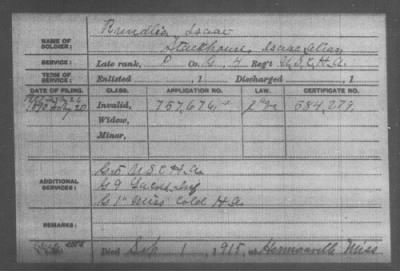 Rundles Isaac
NAME OF SOLDIER: Stackhouse, Isaac Alias
SERVICE: Late rank, P Co. G, 4 Reg't U.S.C.H.A.
TERM OF SERVICE: Enlisted , 1 Discharged , 1
DATE OF FILING. CLASS. APPLICATION NO. LAW. CERTIFICATE NO.
1890 July 20 Invalid, 757,676 584,277
Widow,
Minor,
ADDITIONAL SERVICES:
G 5 U.S.C.H.A.
G 9 Inf
G 1" Miss Cold H.A.
REMARKS:
Died Sep 1, 1915, at Hermanville Miss